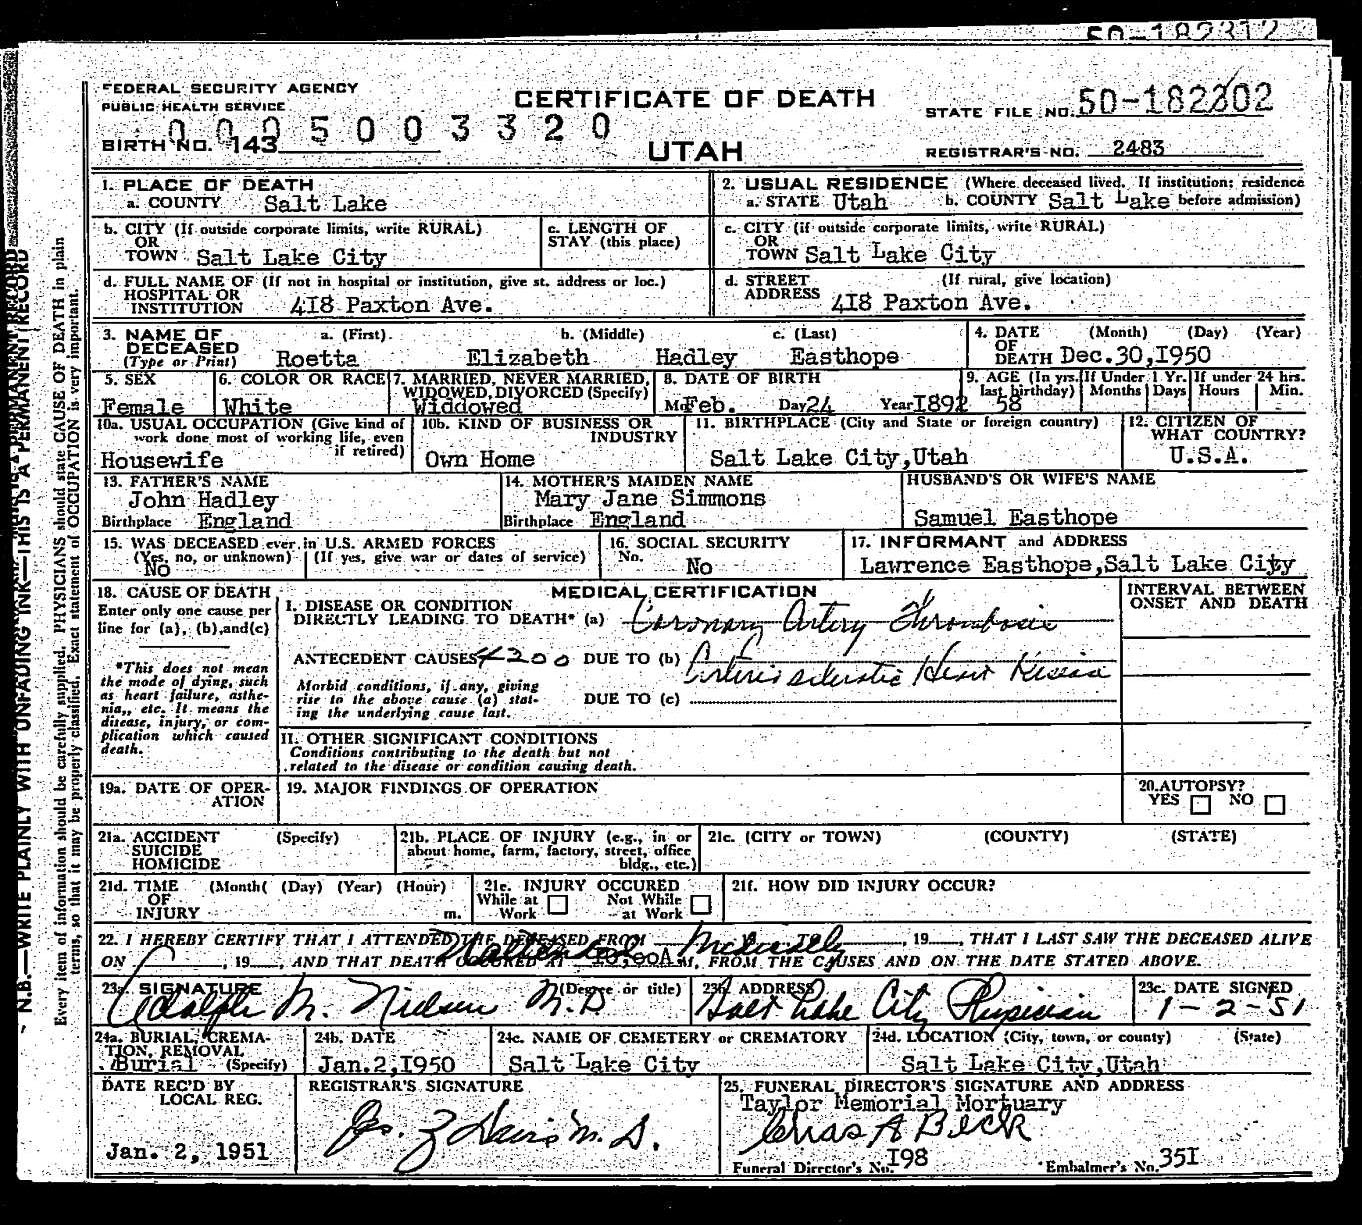 50-182312
FEDERAL SECURITY AGENCY
PUBLIC HEALTH SERVICE
CERTIFICATE OF DEATH
STATE FILE NO. 50-182302
0005003320
BIRTH NO. 143
UTAH
REGISTRAR'S NO. 2483
1. PLACE OF DEATH
a. COUNTY Salt Lake
2. USUAL RESIDENCE (Where deceased lived. If institution: residence
a. STATE Utah b. COUNTY Salt Lake before admission)
b. CITY (If outside corporate limits, write RURAL)
OR
TOWN Salt Lake City
c. LENGTH OF
STAY (this place)
c. CITY (if outside corporate limits, write RURAL)
OR
TOWN Salt Lake City
d. FULL NAME OF (If not in hospital or institution, give st. address or loc.)
HOSPITAL OR
INSTITUTION 418 Paxton Ave.
d. STREET (If rural, give location)
ADDRESS 418 Paxton Ave.
3. NAME OF a. (First) b. (Middle) c. (Last)
DECEASED
(Type or Print) Roetta Elizabeth Hadley Easthope
4. DATE (Month) (Day) (Year)
OF
DEATH Dec.30,I950
5. SEX
Female
6. COLOR OR RACE
White
7. MARRIED, NEVER MARRIED,
WIDOWED, DIVORCED (Specify)
Widdowed
8. DATE OF BIRTH
Mo Feb. Day 24 Year I892
9. AGE (In yrs.
last birthday) 58
If Under 1 Yr.
Months Days
If under 24 hrs.
Hours Min.
10a. USUAL OCCUPATION (Give kind of
work done most of working life, even
if retired)
Housewife
10b. KIND OF BUSINESS OR
INDUSTRY
Own Home
11. BIRTHPLACE (City and State or foreign country)
Salt Lake City,Utah
12. CITIZEN OF
WHAT COUNTRY?
U.S.A.
13. FATHER'S NAME
John Hadley
Birthplace England
14. MOTHER'S MAIDEN NAME
Mary Jane Simmons
Birthplace England
HUSBAND'S OR WIFE'S NAME
Samuel Easthope
15. WAS DECEASED ever in U.S. ARMED FORCES
(Yes, no, or unknown) (If yes, give war or dates of service)
No
16. SOCIAL SECURITY
No. No
17. INFORMANT and ADDRESS
Lawrence Easthope,Salt Lake City
18. CAUSE OF DEATH
Enter only one cause per
line for (a), (b), and (c)
*This does not mean
the mode of dying, such
as heart failure, asthe-
nia,, etc. It means the
disease, injury, or com-
plication which caused
death.
MEDICAL CERTIFICATION
I. DISEASE OR CONDITION
DIRECTLY LEADING TO DEATH* (a) Coronary Artery Thrombosis
ANTECEDENT CAUSES 4200 DUE TO (b) Arteriosclerotic Heart Disease
Morbid conditions, if any, giving
rise to the above cause (a) stat-
ing the underlying cause last.
DUE TO (c)
INTERVAL BETWEEN
ONSET AND DEATH
II. OTHER SIGNIFICANT CONDITIONS
Conditions contributing to the death but not
related to the disease or condition causing death.
19a. DATE OF OPER-
ATION
19. MAJOR FINDINGS OF OPERATION
20. AUTOPSY?
YES NO
21a. ACCIDENT (Specify)
SUICIDE
HOMICIDE
21b. PLACE OF INJURY (e.g., in or
about home, farm, factory, street, office
bldg., etc.)
21c. (CITY or TOWN) (COUNTY) (STATE)
21d. TIME (Month( (Day) (Year) (Hour)
OF
INJURY m.
21e. INJURY OCCURED
While at Not While
Work at Work
21f. HOW DID INJURY OCCUR?
22. I HEREBY CERTIFY THAT I ATTENDED THE DECEASED FROM , 19 , THAT I LAST SAW THE DECEASED ALIVE
Unattended Medically
ON , 19 , AND THAT DEATH OCCURED AT M, FROM THE CAUSES AND ON THE DATE STATED ABOVE.
23a. SIGNATURE (Degree or title)
Adolph M. Nielsen M.D
23b. ADDRESS
Salt Lake City Physician
23c. DATE SIGNED
1-2-51
24a. BURIAL, CREMA-
TION, REMOVAL
Burial (Specify)
24b. DATE
Jan.2,I950
24c. NAME OF CEMETERY or CREMATORY
Salt Lake City
24d. LOCATION (City, town, or county) (State)
Salt Lake City,Utah
DATE REC'D BY
LOCAL REG.
Jan. 2, 1951
REGISTRAR'S SIGNATURE
M.D.
25. FUNERAL DIRECTOR'S SIGNATURE AND ADDRESS
Taylor Memorial Mortuary
Chas A Beck
Funeral Director's No. I98 Embalmer's No. 35I
N.B.—WRITE PLAINLY WITH UNFADING INK—THIS IS A PERMANENT RECORD
Every item of information should be carefully supplied. PHYSICIANS should state CAUSE OF DEATH in plain
terms, so that it may be properly classified. Exact statement of OCCUPATION is very important.